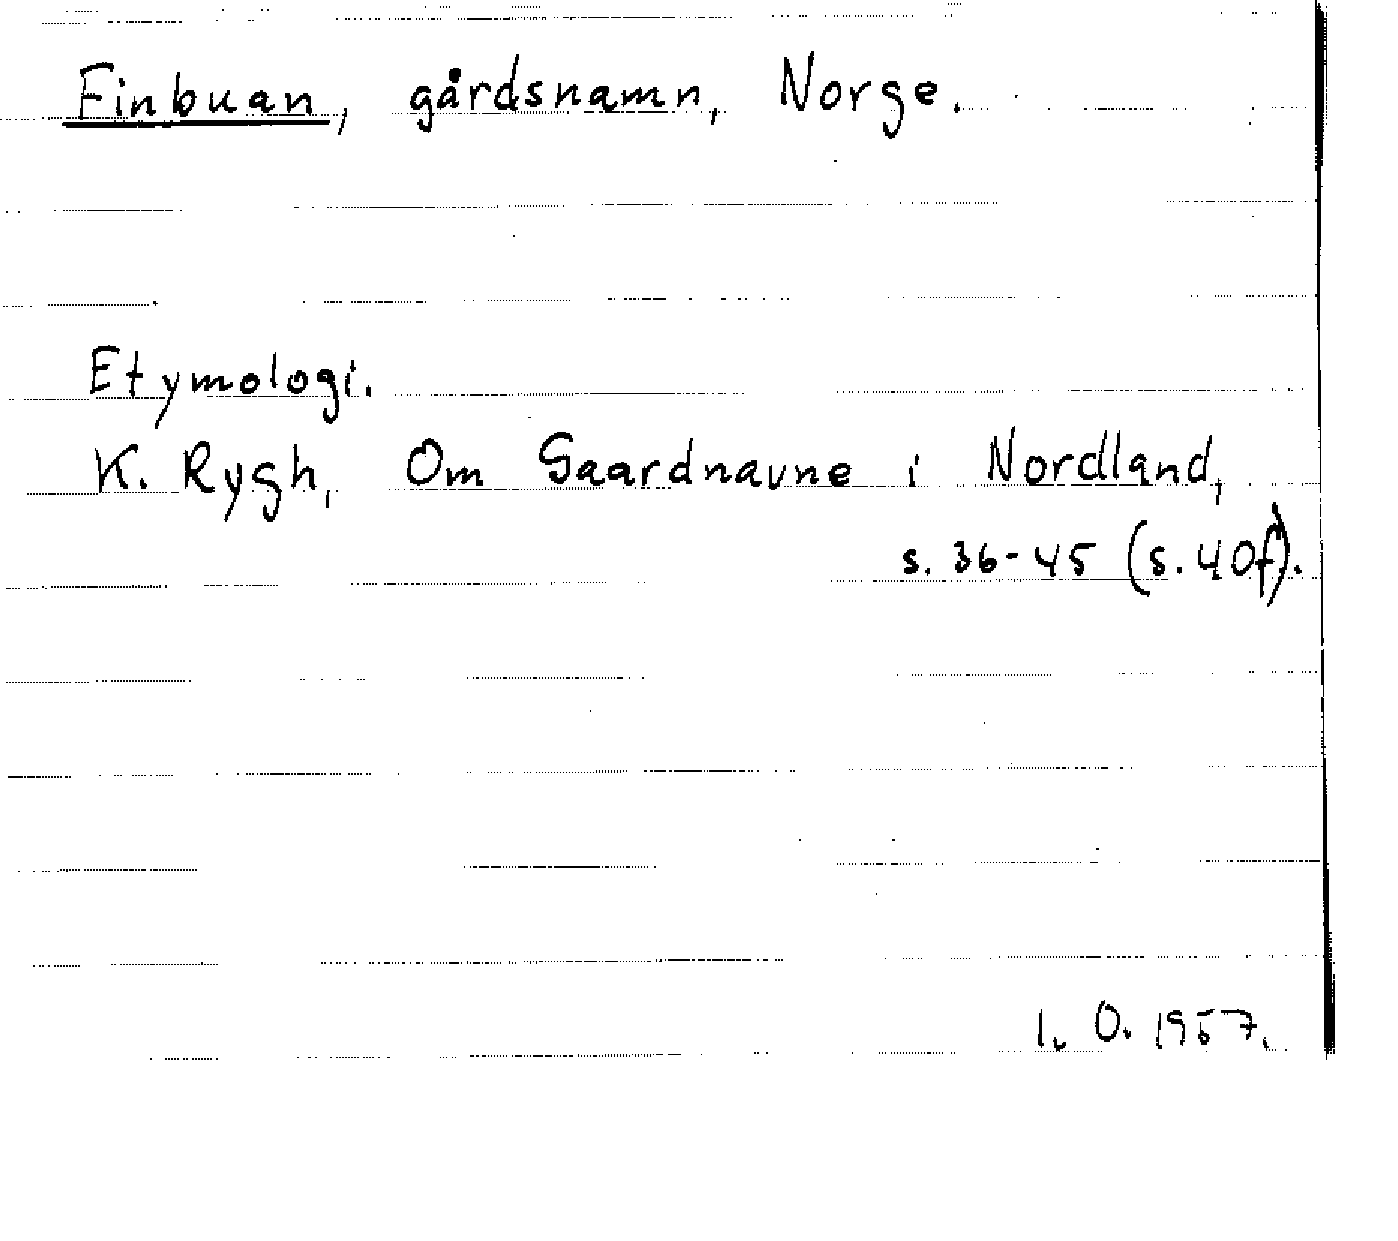 Finbuan, gårdsnamn, Norge.
Etymologi.
K. Rygh, Om Gaardnavne i Nordland,
s. 36-45 (s. 40f).
I. O. 1957.